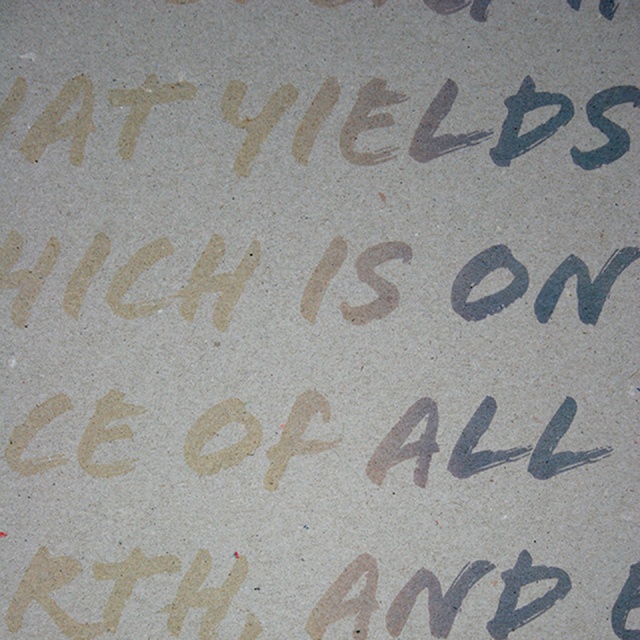 HAT YIELDS
HICH IS ON
CE OF ALL
RTH, AND